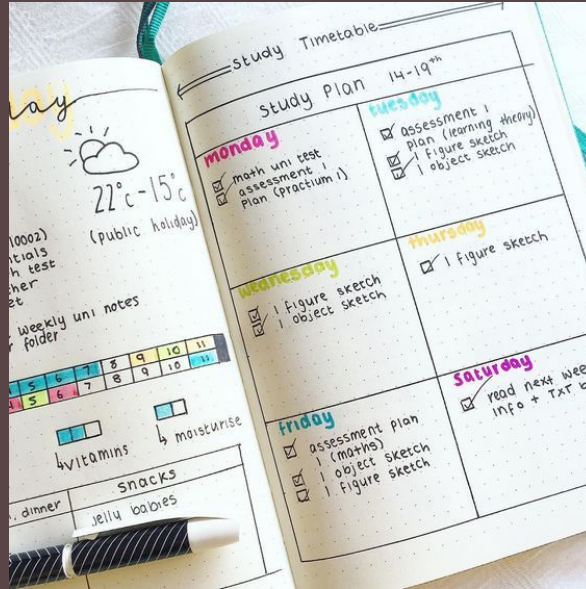 ay
22°c - 15°c
(public holiday)
10002)
ntials
h test
ther
et
weekly uni notes
r folder
5 6 7 8 9 10 11
5 6 7 8 9 10 11
vitamins
moisturise
dinner
snacks
jelly babies
Study Timetable
Study Plan 14-19th
monday
math uni test
assessment 1
plan (practium 1)
tuesday
assessment 1
plan (learning theory)
1 figure sketch
1 object sketch
wednesday
1 figure sketch
1 object sketch
thursday
1 figure sketch
friday
assessment plan
1 (maths)
1 object sketch
1 figure sketch
saturday
read next wee
info + TxT